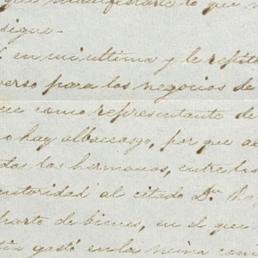 que manifestarle lo que
sigue.
en mi ultima y le repito
verso para los negocios de
como representante de
no hay albaceazgo, por que
las hermanas, entre las
autoridad al citado Dn.
parto de bienes, en el que
gastó en la misma